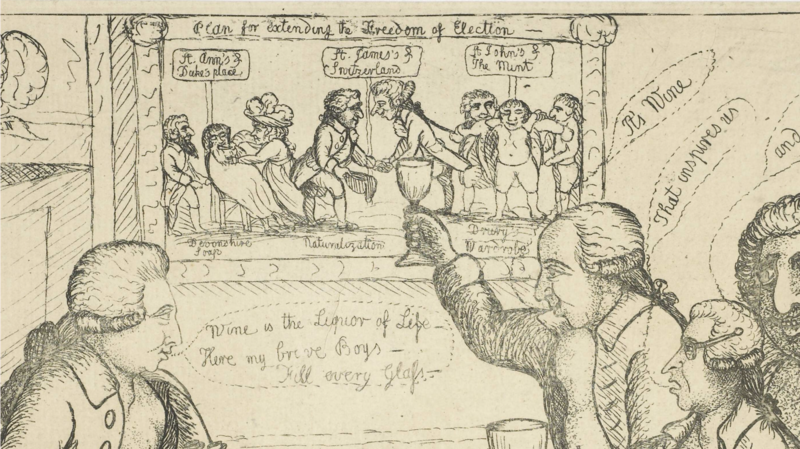 Plan for Extending the Freedom of Election —
St. Ann's &
Duke's place
St. James's &
Switzerland
St. John's &
The Mint
Devonshire
Soap
Naturalization
Drury
Wardrobe
Wine is the Liquor of Life —
Here my brave Boys —
Fill every Glass —
It's Wine
That inspires us
and